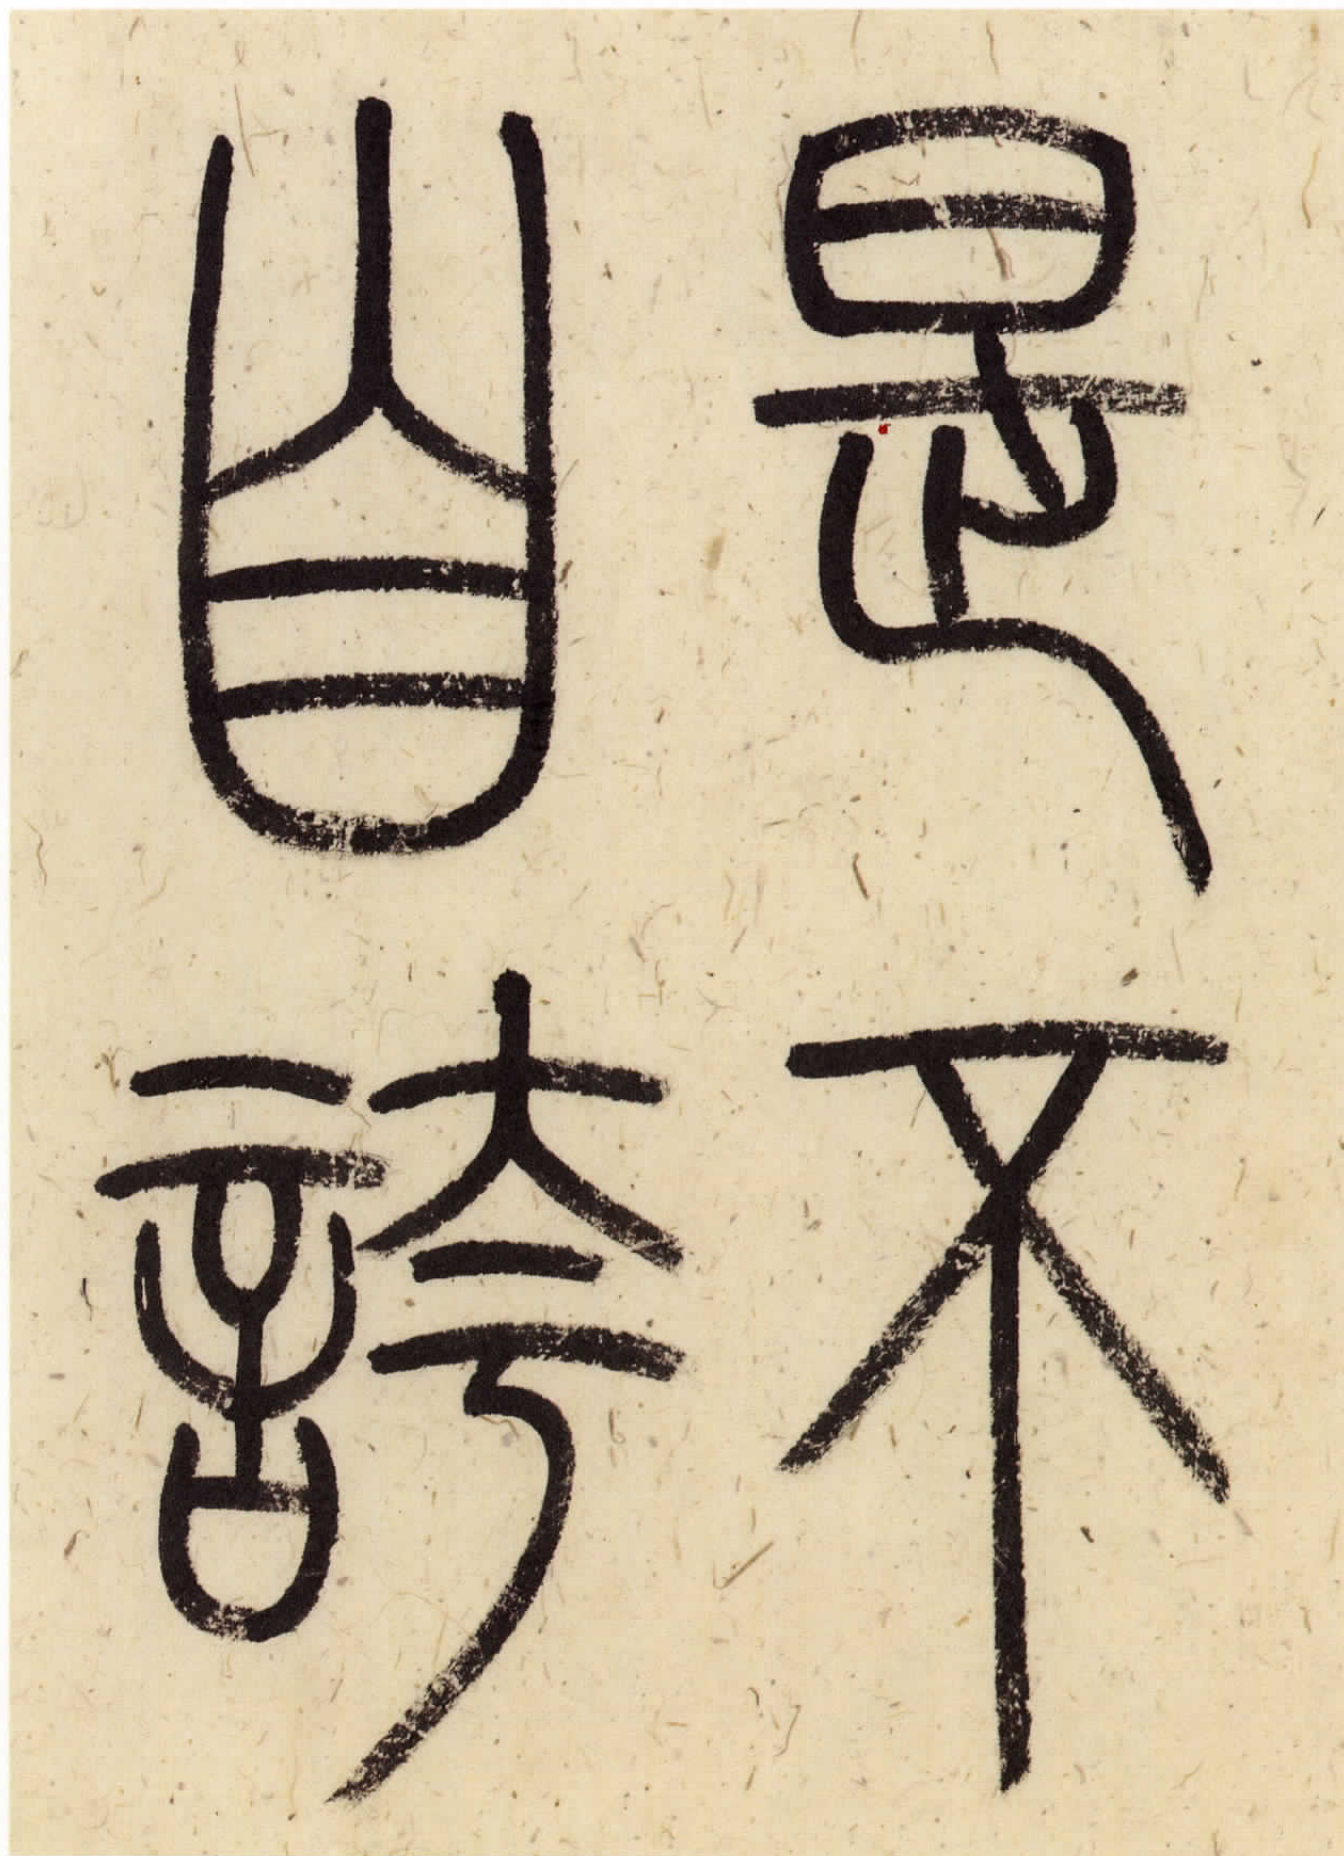 是不
自誇